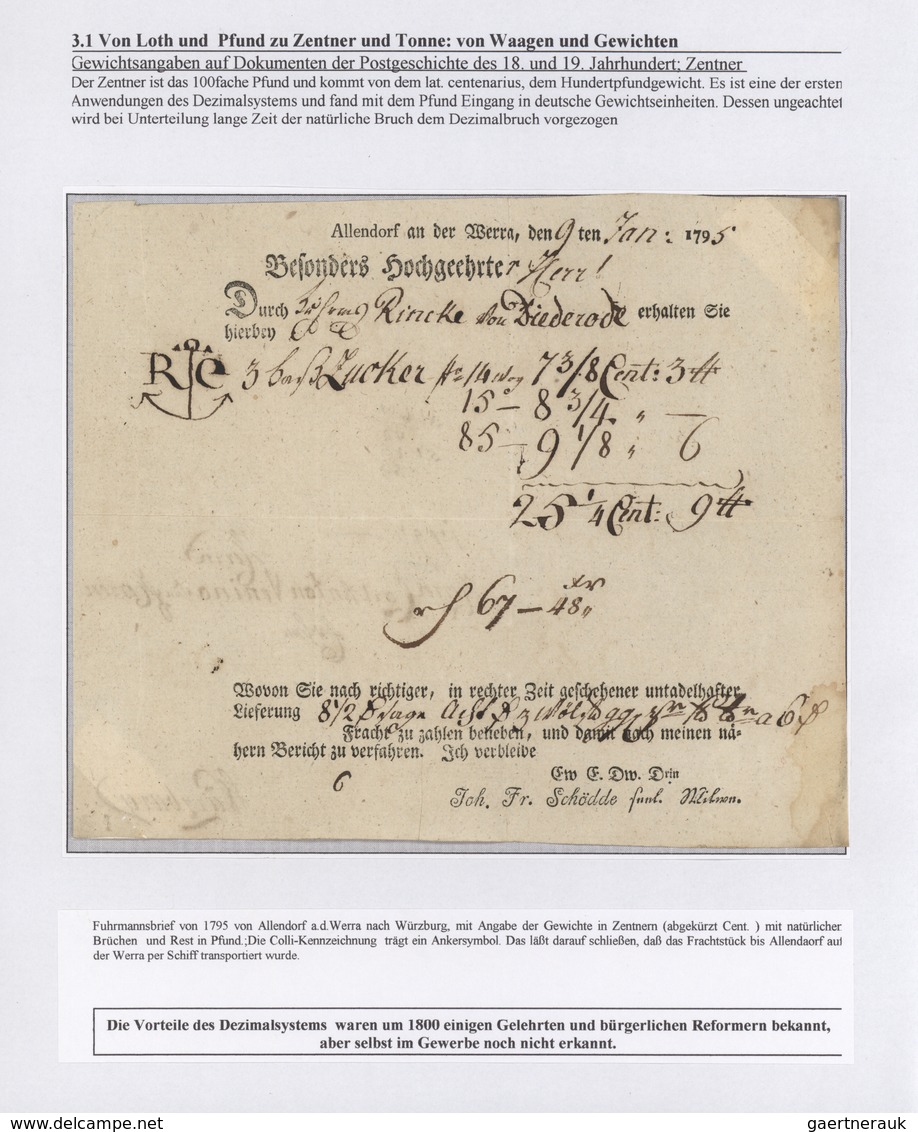 3.1 Von Loth und Pfund zu Zentner und Tonne: von Waagen und Gewichten
Gewichtsangaben auf Dokumenten der Postgeschichte des 18. und 19. Jahrhundert; Zentner
Der Zentner ist das 100fache Pfund und kommt von dem lat. centenarius, dem Hundertpfundgewicht. Es ist eine der ersten
Anwendungen des Dezimalsystems und fand mit dem Pfund Eingang in deutsche Gewichtseinheiten. Dessen ungeachtet
wird bei Unterteilung lange Zeit der natürliche Bruch dem Dezimalbruch vorgezogen
Allendorf an der Werra, den 9 ten Jan: 1795
Besonders Hochgeehrter Herr!
Durch Rincke von Diederode erhalten Sie
hierbey
R C 3 Zucker 14 7 3/8 Cent: 3 ℔
15 — 8 3/4 „ —
85 — 9 1/8 „ 6
25 1/4 Cent: 9 ℔
67 — 48
Wovon Sie nach richtiger, in rechter Zeit geschehener untadelhafter
Lieferung 8 1/2 a 6
Fracht zu zahlen belieben, und damit nach meinen nä-
hern Bericht zu verfahren. Ich verbleibe
6
Ew E. Dw. Drin
Joh. Fr. Schödde seel. Witwe.
Fuhrmannsbrief von 1795 von Allendorf a.d.Werra nach Würzburg, mit Angabe der Gewichte in Zentnern (abgekürzt Cent. ) mit natürlicher
Brüchen und Rest in Pfund.;Die Colli-Kennzeichnung trägt ein Ankersymbol. Das läßt darauf schließen, daß das Frachtstück bis Allendaorf auf
der Werra per Schiff transportiert wurde.
Die Vorteile des Dezimalsystems waren um 1800 einigen Gelehrten und bürgerlichen Reformern bekannt,
aber selbst im Gewerbe noch nicht erkannt.
www.delcampe.net
gaertnerauk